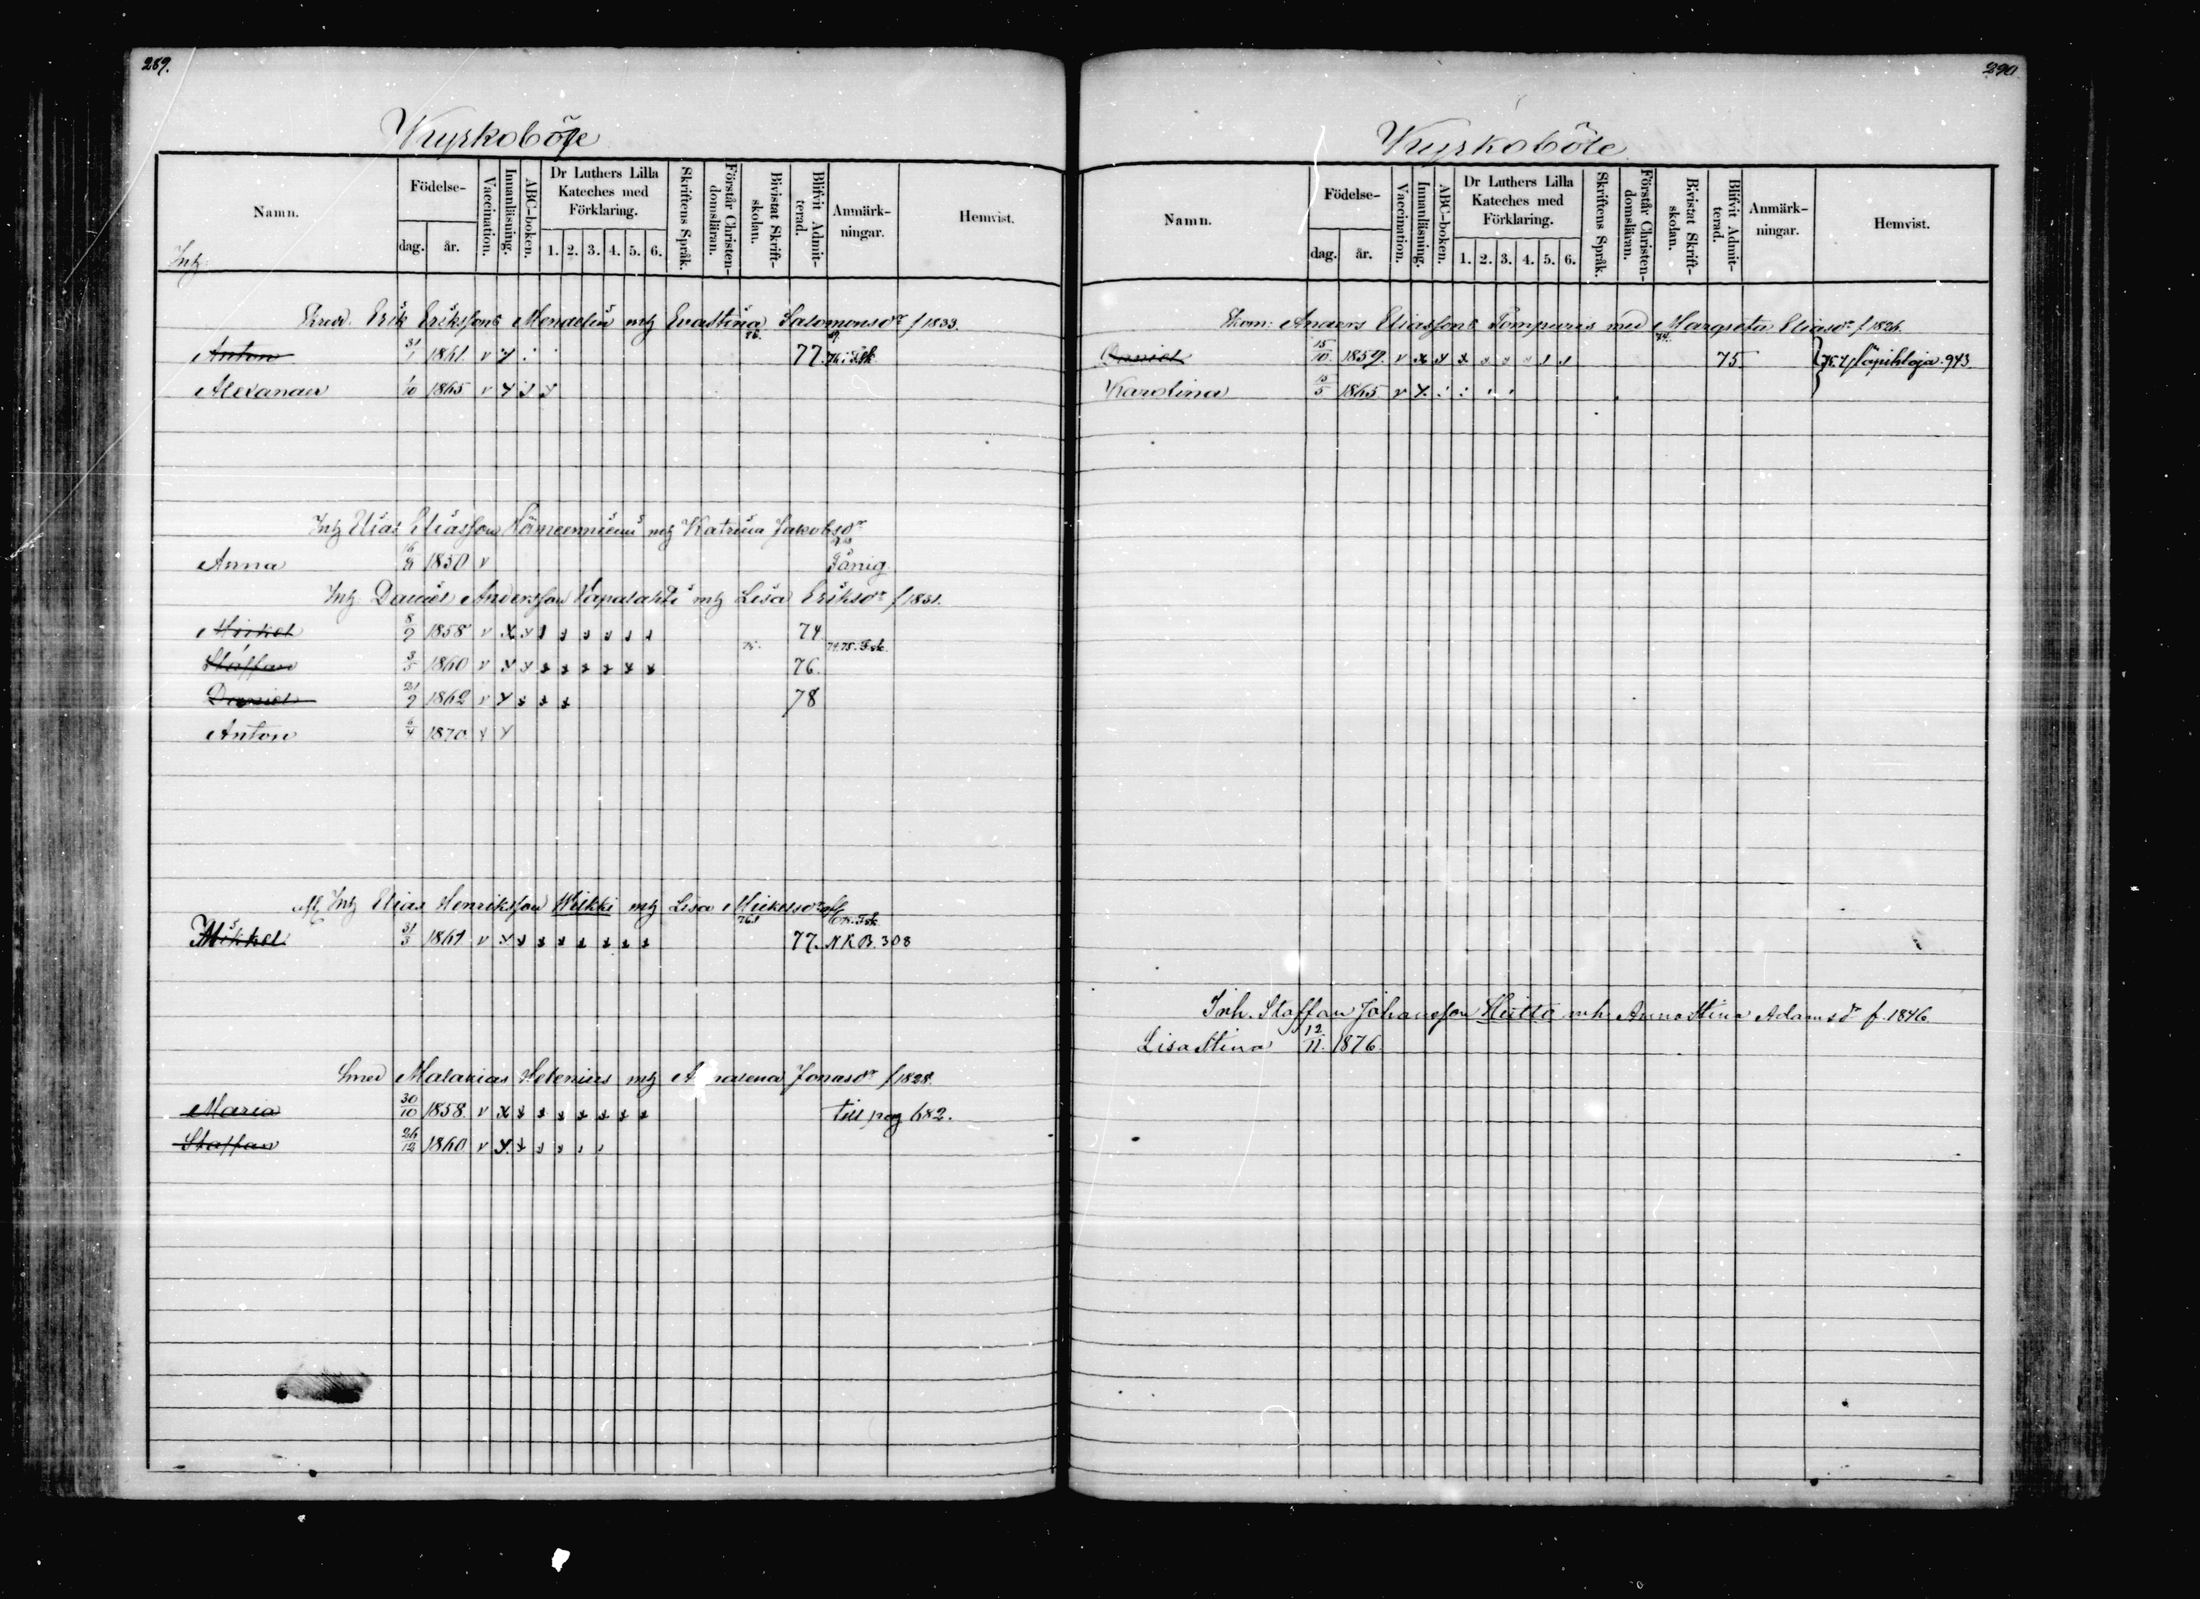 289.
Kyrkoböle
Namn. Födelse- dag. år. Vaccination. Innanläsning. ABC-boken. Dr Luthers Lilla Kateches med Förklaring. 1. 2. 3. 4. 5. 6. Skriftens Språk. Förstår Christendomsläran. Bivistat Skriftskolan. Blifvit Admitterad. Anmärkningar. Hemvist.
Inh:
Erik Eriksson Mendelin mh Evastina Salomonsdr f 1833.
Anton 31/1 1861 v y 77.
Alexander 1/10 1865 v y
Inh Elias Eliasson mh Katrina Jakobsdr
Anna 1850 v Fånig.
Inh. Daniel Andersson Vapalahti mh Lisa Eriksdr f 1831.
Mickel 8/9 1858 v x y 74.
Staffan 1860 v y y 76.
Daniel 21/9 1862 v y x x x 78
Anton 6/4 1870 v y
afl Inh Elias Henriksson Wilkki mh Lisa Mickelsdr afl
Mikkel 31/3 1861 v y x x x x x x x 77. N.K.B. 308
Smed Malakias Helenius mh Jonasdr f 1828.
Maria 30/10 1858 v x x x x x x x x till pag 682.
Staffan 26/12 1860 v y x x x
290.
Kyrkoböle
Namn. Födelse- dag. år. Vaccination. Innanläsning. ABC-boken. Dr Luthers Lilla Kateches med Förklaring. 1. 2. 3. 4. 5. 6. Skriftens Språk. Förstår Christendomsläran. Bivistat Skriftskolan. Blifvit Admitterad. Anmärkningar. Hemvist.
Anders Eliasson Tompuris med Margreta Eliasdr f 1826.
Daniel 15/10 1859. v x y x 75. 943.
Karolina 15/5 1865 v y
Inh. Staffan Johansson Hütto mh Anna Stina Adamsdr f. 1846.
Lisa Stina 12/11. 1876.